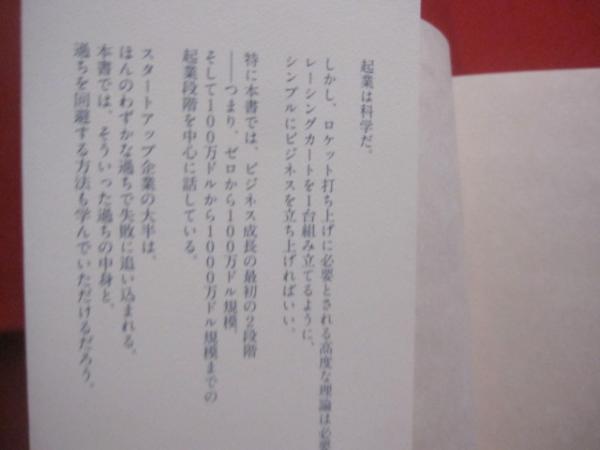 起業は科学だ。
しかし、ロケット打ち上げに必要とされる高度な理論は必要
レーシングカートを1台組み立てるように、
シンプルにビジネスを立ち上げればいい。
特に本書では、ビジネス成長の最初の2段階
──つまり、ゼロから100万ドル規模、
そして100万ドルから1000万ドル規模までの
起業段階を中心に話している。
スタートアップ企業の大半は、
ほんのわずかな過ちで失敗に追い込まれる。
本書では、そういった過ちの中身と、
過ちを回避する方法も学んでいただけるだろう。